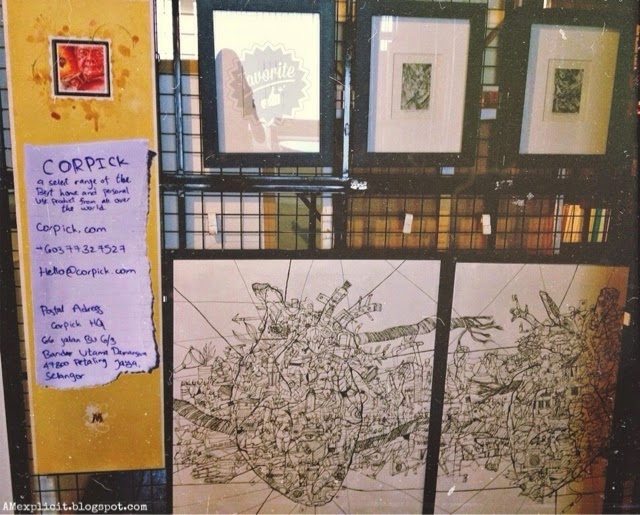 favorite
CORPICK
a select range of the
Best home and personal
use product from all over
the world.
Corpick.com
+60377327527
Hello@corpick.com
Postal Adress
Corpick HQ
66 jalan BU 6/3
Bandar Utama Damansara
47800 Petaling Jaya,
Selangor
M
AMexplicit.blogspot.com